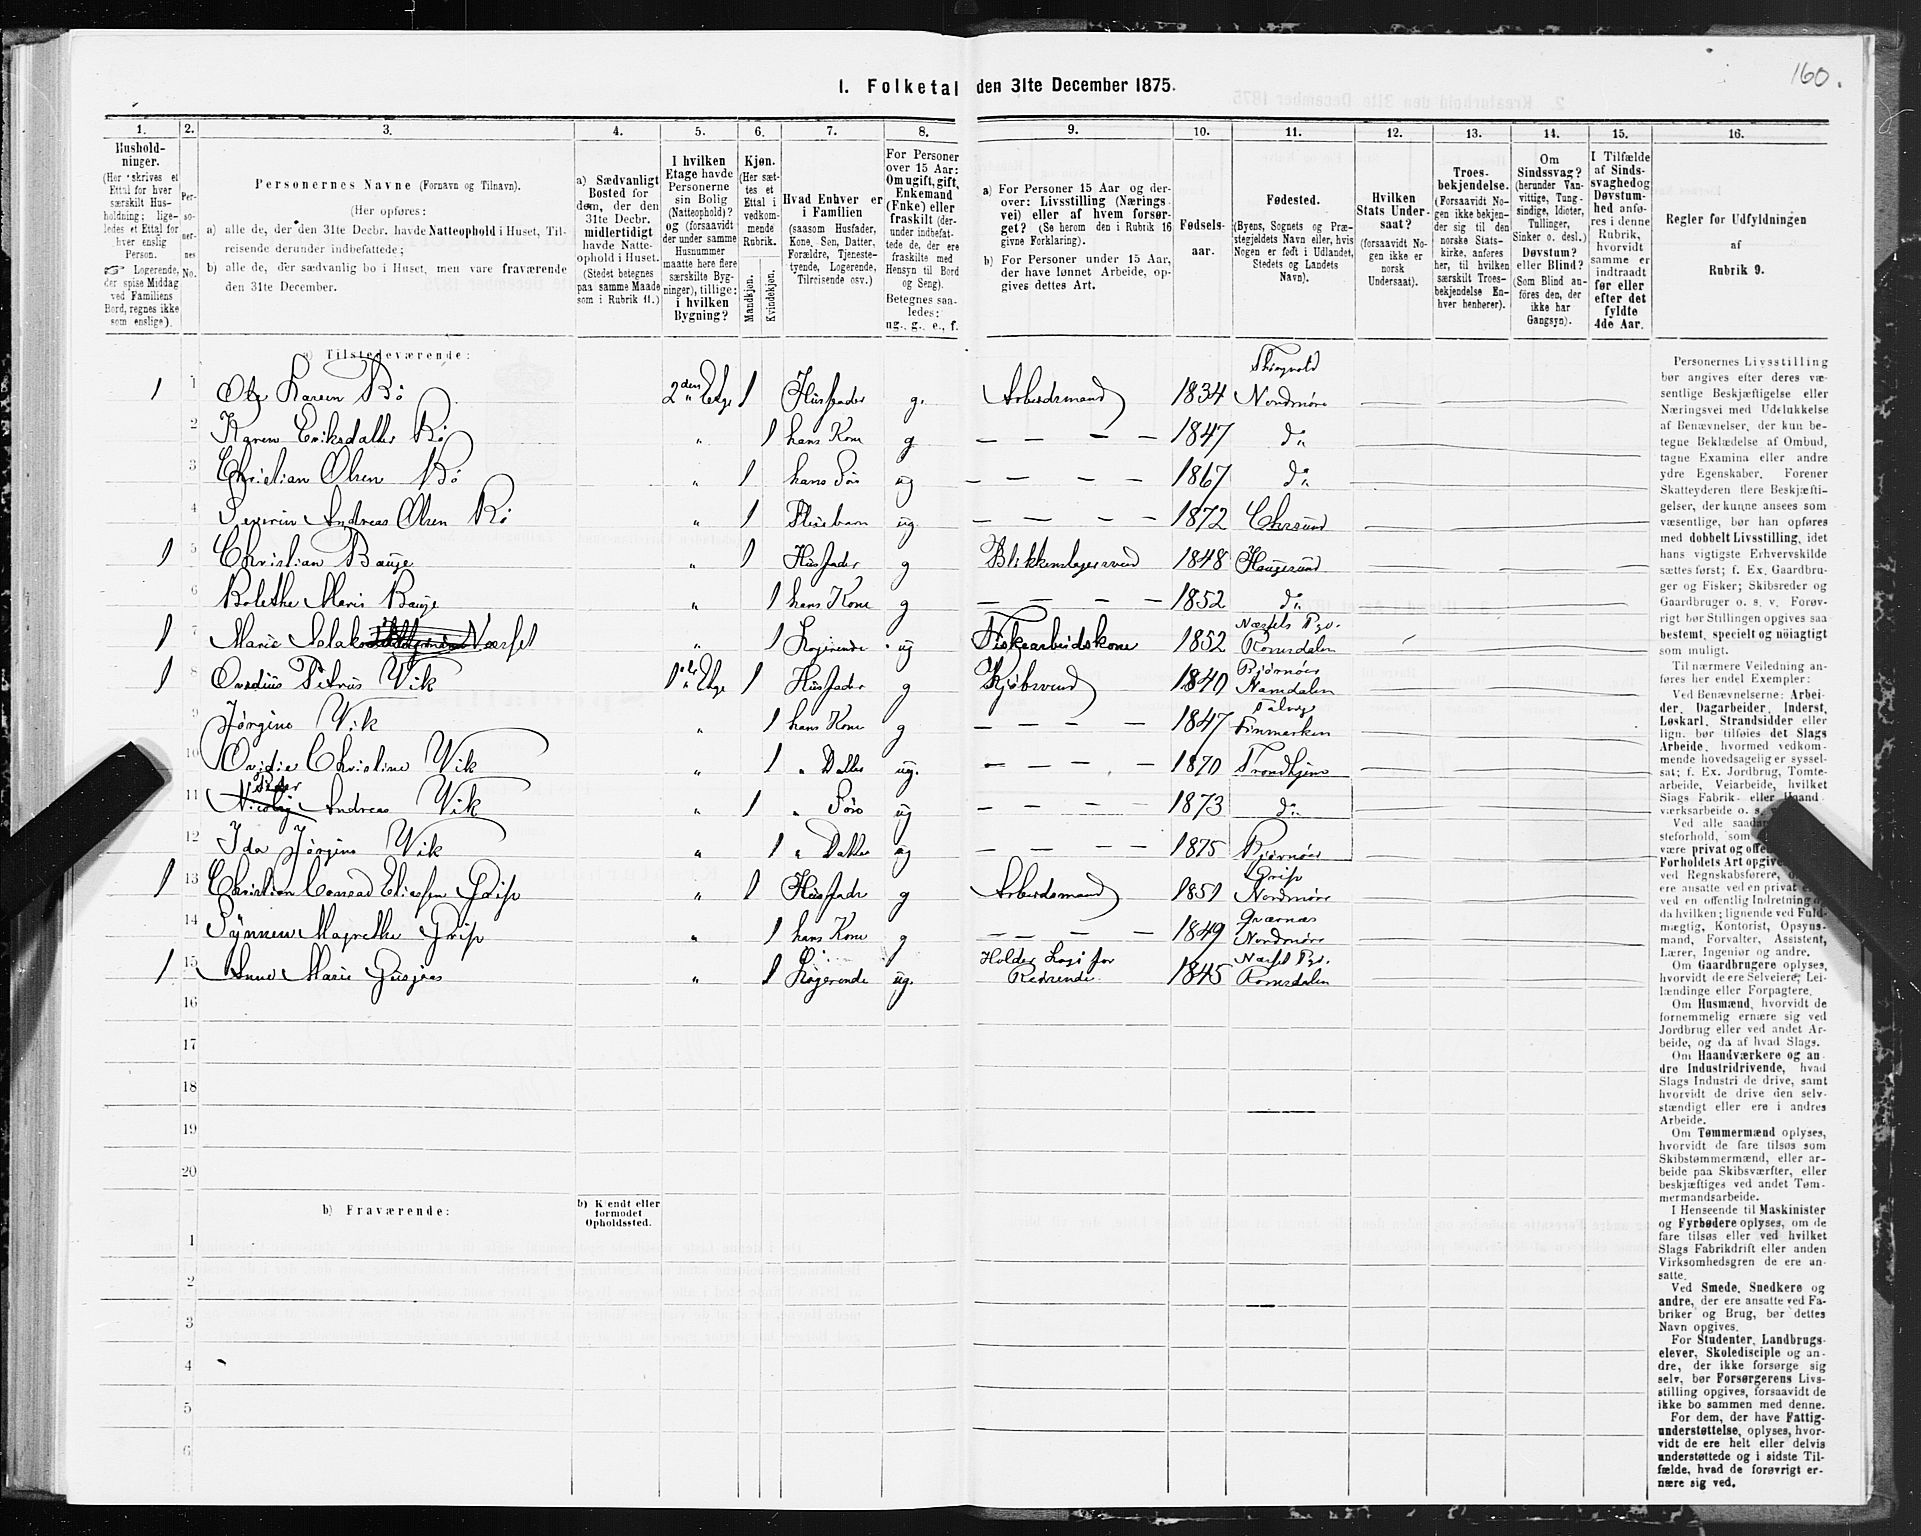 160.
1. Folketal den 31te December 1875.
1. 2. 3. 4. 5. 6. 7. 8. 9. 10. 11. 12. 13. 14. 15. 16.
Hushold-
ninger.
(Her skrives et
Ettal for hver
særskilt Hus-
holdning; lige-
ledes et Ettal for
hver enslig
Person.
☞ Logerende,
der spise Middag
ved Familiens
Bord, regnes ikke
som enslige).
Per-
so-
ner-
nes
No.
Personernes Navne (Fornavn og Tilnavn).
(Her opføres:
a) alle de, der den 31te Decbr. havde Natteophold i Huset, Til-
reisende derunder indbefattede;
b) alle de, der sædvanlig bo i Huset, men vare fraværende
den 31te December.
a) Sædvanligt
Bosted for
dem, der den
31te Decbr.
midlertidigt
havde Natte-
ophold i Huset.
(Stedet betegnes
paa samme Maade
som i Rubrik 11.)
I hvilken
Etage havde
Personerne
sin Bolig
(Natteophold)?
og (forsaavidt
der under samme
Husnummer
maatte høre flere
særskilte Byg-
ninger), tillige:
i hvilken
Bygning?
Kjøn.
(Her sæt-
tes et
Ettal i
vedkom-
mende
Rubrik.
Mandkjøn.
Kvindekjøn.
Hvad Enhver er
i Familien
(saasom Husfader,
Kone, Søn, Datter,
Forældre, Tjeneste-
tyende, Logerende,
Tilreisende osv.)
For Personer
over 15 Aar:
Om ugift, gift,
Enkemand
(Enke) eller
fraskilt (der-
under indbefat-
tede de, der ere
fraskilte med
Hensyn til Bord
og Seng).
Betegnes saa-
ledes:
ug., g., e., f.
a) For Personer 15 Aar og der-
over: Livsstilling (Nærings-
vei) eller af hvem forsør-
get? (Se herom den i Rubrik 16
givne Forklaring).
b) For Personer under 15 Aar,
der have lønnet Arbeide, op-
gives dettes Art.
Fødsels-
aar.
Fødested.
(Byens, Sognets og Præ-
stegjeldets Navn eller, hvis
Nogen er født i Udlandet,
Stedets og Landets
Navn).
Hvilken
Stats Under-
saat?
(forsaavidt No-
gen ikke er
norsk
Undersaat).
Troes-
bekjendelse.
(Forsaavidt No-
gen ikke bekjen-
der sig til den
norske Stats-
kirke, anføres
her, til hvilken
særskilt Troes-
bekjendelse En-
hver henhører).
Om
Sindssvag?
(herunder Van-
vittige, Tung-
sindige, Idioter,
Tullinger,
Sinker o. desl.)
Døvstum?
eller Blind?
(Som Blind an-
føres den, der
ikke har
Gangsyn).
I Tilfælde
af Sinds-
svaghed og
Døvstum-
hed anfø-
res i denne
Rubrik,
hvorvidt
samme er
indtraadt
før eller
efter det
fyldte
4de Aar.
Regler for Udfyldningen
af
Rubrik 9.
a) Tilstedeværende:
1 1 Ole Larsen Bø 2den Etage 1 Husfader g. Arbeidsmand 1834 Nordmøre
2 Karen Eriksdatter Bø " 1 hans Kone g — — — — 1847 do
3 Christian Olsen Bø " 1 hans Søn ug — — — — 1867 do
4 Severin Andreas Olsen Bø " 1 Pleiebarn ug. — — — — 1872 Chrsund
1 5 Christian Bauge " 1 Husfader g Blikkenslagersvend 1848 Haugesund
6 Bolethe Marie Bauge " 1 hans Kone g — — — — 1852 do
1 7 Marie Nærset " 1 Logerende ug Fiskearbeidskone 1852 Næssets Pr. Romsdalen
1 8 Ovedius Petrus Vik 1ste Etge 1 Husfader g 1840 Bjørnøer Namdalen
9 Jørgine Vik " 1 hans Kone g — — — — 1847 Talvig Finmarken
10 Ovidie Christine Vik " 1 " Datter ug. — — — — 1870 Trondhjem
11 Peter Andreas Vik " 1 " Søn ug — — — — 1873 do
12 Ida Jørgine Vik " 1 " Datter ug — — — — 1875 Bjørnøer
1 13 Christian Conrad Eliassen Grip " 1 Husfader g Arbeidsmand 1851 Grip Nordmøre
14 Synneve Magrethe Grip " 1 hans Kone g — — — — 1849 Nordmøre
1 15 Anne Marie " 1 Logerende ug. Holder Logi for Reisende 1845 Næsset Pr. Romsdalen
16
17
18
19
20
b) Fraværende:
b) Kjendt eller
formodet
Opholdssted.
1
2
3
4
5
6
Personernes Livsstilling
bør angives efter deres væ-
sentlige Beskjæftigelse eller
Næringsvei med Udelukkelse
af Benævnelser, der kun be-
tegne Beklædelse af Ombud,
tagne Examina eller andre
ydre Egenskaber. Forener
Skatteyderen flere Beskjæfti-
gelser, der kunne ansees som
væsentlige, bør han opføres
med dobbelt Livsstilling, idet
hans vigtigste Erhvervskilde
sættes først; f. Ex. Gaardbru-
ger og Fisker; Skibsreder og
Gaardbruger o. s. v. Forøv-
rigt bør Stillingen opgives saa
bestemt, specielt og nöiagtigt
som muligt.
Til nærmere Veiledning an-
føres her endel Exempler:
Ved Benævnelserne: Arbei-
der, Dagarbeider, Inderst,
Løskarl, Strandsidder eller
lign. bør tilføies det Slags
Arbeide, hvormed vedkom-
mende hovedsagelig er syssel-
sat; f. Ex. Jordbrug, Tomte-
arbeide, Veiarbeide, hvilket
Slags Fabrik- eller Haand-
værksarbeide o. s.
Ved alle
steforhold, som
være privat og
Forholdets Art
ved Regnskabsførere,
ere ansatte ved en privat
ved en offentlig Indretning
da hvilken; lignende ved Fuld-
mægtig, Kontorist, Opsyns-
mand, Forvalter, Assistent,
Lærer, Ingeniør og andre.
Om Gaardbrugere oplyses,
hvorvidt de ere Selveiere, Lei-
lændinge eller Forpagtere.
Om Husmænd, hvorvidt de
fornemmelig ernære sig ved
Jordbrug eller ved andet Ar-
beide, og da af hvad Slags.
Om Haandværkere og an-
dre Industridrivende, hvad
Slags Industri de drive, samt
hvorvidt de drive den selv-
stændigt eller ere i andres
Arbeide.
Om Tømmermænd oplyses,
hvorvidt de fare tilsøs som
Skibstømmermænd, eller ar-
beide paa Skibsværfter, eller
beskjæftiges ved andet Tøm-
mermandsarbeide.
I Henseende til Maskinister
og Fyrbødere oplyses, om de
fare tilsøs eller ved hvilket
Slags Fabrikdrift eller anden
Virksomhedsgren de ere an-
satte.
Ved Smede, Snedkere og
andre, der ere ansatte ved Fa-
briker og Brug, bør dettes
Navn opgives.
For Studenter, Landbrugs-
elever, Skoledisciple og an-
dre, der ikke forsørge sig
selv, bør Forsørgerens Livs-
stilling opgives, forsaavidt de
ikke bo sammen med denne.
For dem, der have Fattig-
understøttelse, oplyses, hvor-
vidt de ere helt eller delvis
understøttede og i sidste Til-
fælde, hvad de forøvrigt er-
nære sig ved.